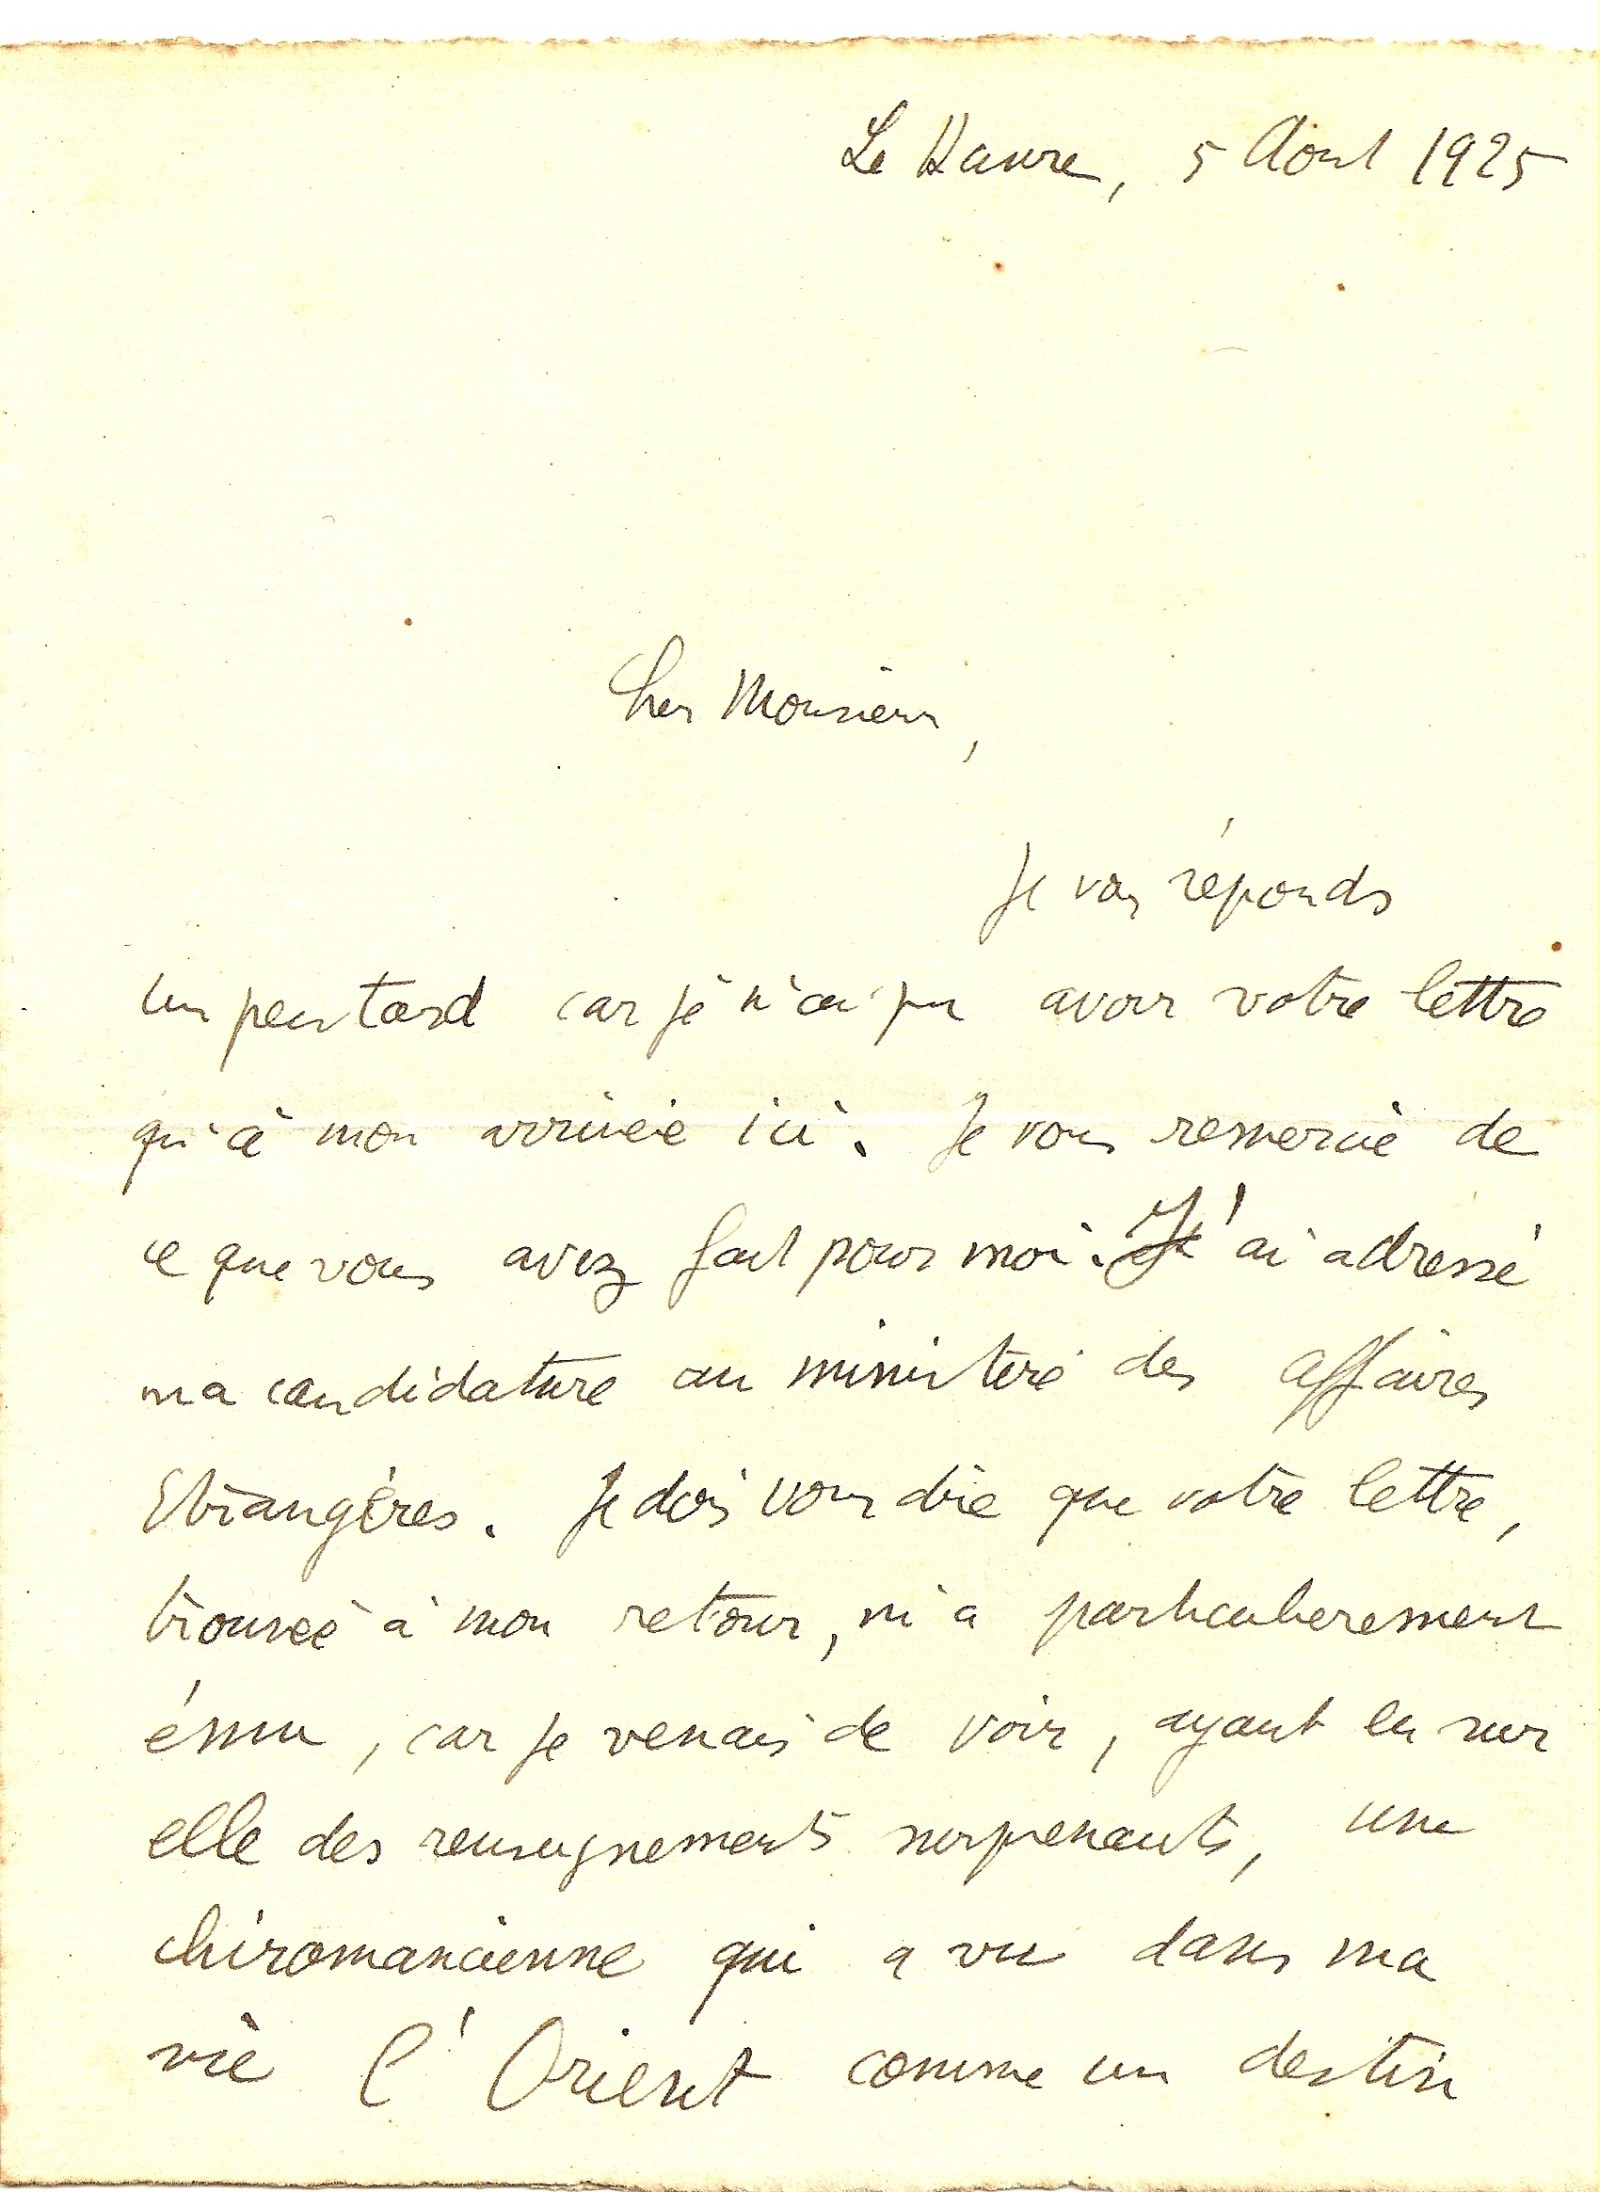 Le Havre, 5 Août 1925
Cher Monsieur,
Je vous réponds
un peu tard car je n'ai pu avoir votre lettre
qu'à mon arrivée ici. Je vous remercie de
ce que vous avez fait pour moi. J'ai adressé
ma candidature au ministère des Affaires
Etrangères. Je dois vous dire que votre lettre,
trouvée à mon retour, m'a particulierement
ému, car je venais de voir, ayant eu sur
elle des renseignements surprenants, une
chiromancienne qui a vu dans ma
vie l'Orient comme un destin